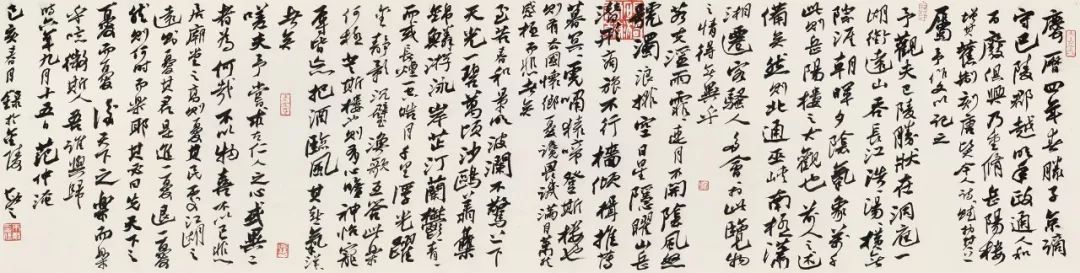 慶曆四年春滕子京謫
守巴陵郡越明年政通人和
百廢俱興乃重修岳陽樓
增其舊制刻唐賢今人詩賦於其上
屬予作文以記之
予觀夫巴陵勝狀在洞庭一
湖銜遠山吞長江浩浩湯湯橫無
際涯朝暉夕陰氣象萬千
此則岳陽樓之大觀也前人之述
備矣然則北通巫峽南極瀟
湘遷客騷人多會於此覽物
之情得無異乎
若夫淫雨霏霏連月不開陰風怒
號濁浪排空日星隱曜山岳
潛形商旅不行檣傾楫摧薄
暮冥冥虎嘯猿啼登斯樓也
則有去國懷鄉憂讒畏譏滿目蕭然
感極而悲者矣
至若春和景明波瀾不驚上下
天光一碧萬頃沙鷗翔集
錦鱗游泳岸芷汀蘭鬱鬱青青
而或長煙一空皓月千里浮光躍
金靜影沉璧漁歌互答此樂
何極登斯樓也則有心曠神怡寵
辱皆忘把酒臨風其喜氣洋洋
者矣
嗟夫予嘗求古仁人之心或異二
者為何哉不以物喜不以己悲
居廟堂之高則憂其民處江湖之
遠則憂其君是進亦憂退亦憂
然則何時而樂耶其必曰先天下之
憂而憂後天下之樂而樂
乎噫微斯人吾誰與歸
時六年九月十五日范仲淹
己亥春月錄於金陵